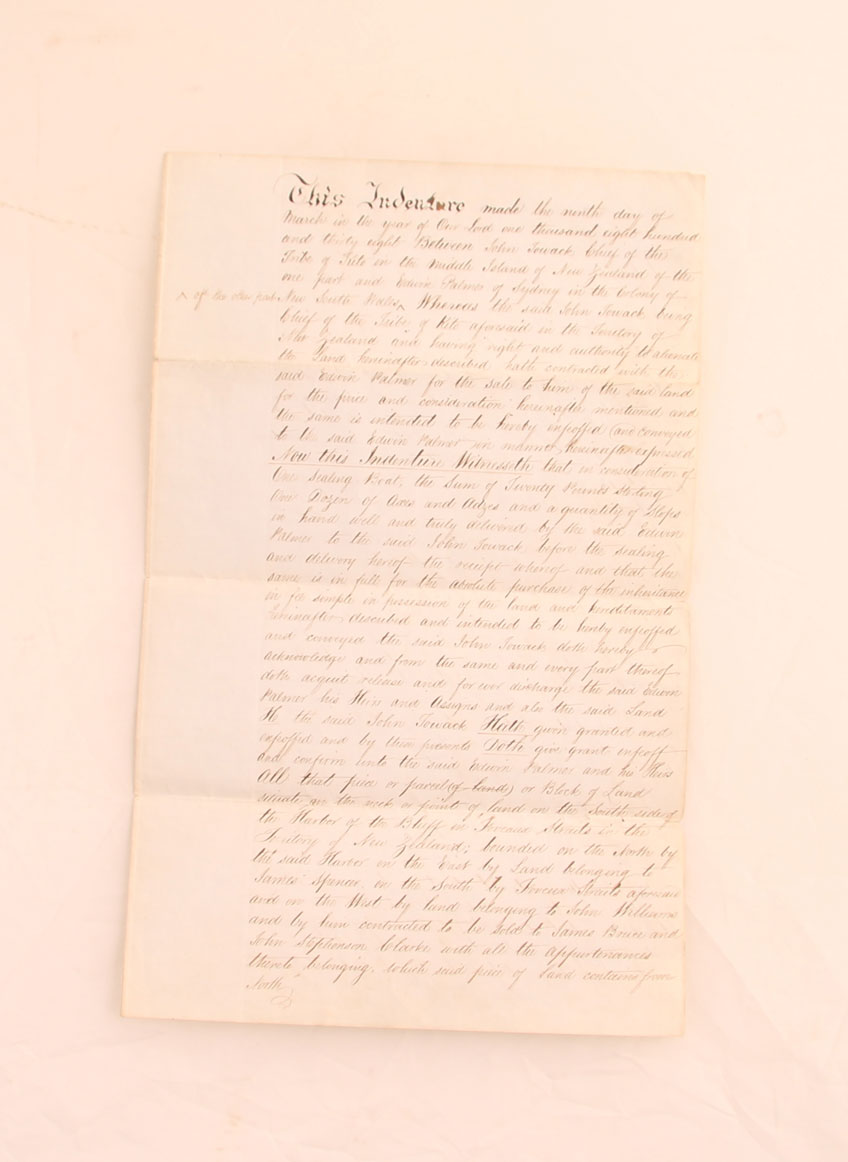 This Indenture made the ninth day of
March in the year of Our Lord one thousand eight hundred
and thirty eight Between John Towack Chief of the
Tribe of in the Middle Island of New Zealand of the
one part and Edwin Palmer of Sydney in the Colony of
^ of the other part New South Wales ^ Whereas the said John Towack being
Chief of the Tribe of aforesaid in the Territory of
New Zealand and having right and authority to alienate
the Land hereinafter described hath contracted with the
said Edwin Palmer for the sale to him of the said land
for the price and consideration hereinafter mentioned and
the same is intended to be hereby enfeoffed and conveyed
to the said Edwin Palmer in manner hereinafter expressed
Now this Indenture Witnesseth that in consideration of
One Sealing Boat, the Sum of Twenty Pounds Sterling
One Dozen of Axes and Adzes and a quantity of Slops
in hand well and truly delivered by the said Edwin
Palmer to the said John Towack before the sealing
and delivery hereof the receipt whereof and that the
same is in full for the absolute purchase of the inheritance
in fee simple in possession of the land and hereditaments
hereinafter described and intended to be hereby enfeoffed
and conveyed the said John Towack doth hereby
acknowledge and from the same and every part thereof
doth acquit release and for ever discharge the said Edwin
Palmer his Heirs and Assigns and also the said Land
He the said John Towack Hath given granted and
enfeoffed and by these presents Doth give grant enfeoff
and confirm unto the said Edwin Palmer and his Heirs
All that piece or parcel (of land) or Block of Land
situate on the neck or point of land on the South side of
the Harbor of the Bluff in Foveaux Straits in the
Territory of New Zealand; bounded on the North by
the said Harbor on the East by Land belonging to
James Spencer on the South by Foveaux Straits aforesaid
and on the West by land belonging to John Williams
and by him contracted to be sold to James Bruce and
John Stephenson Clarke with all the Appurtenances
thereto belonging. which said piece of Land contains from
North